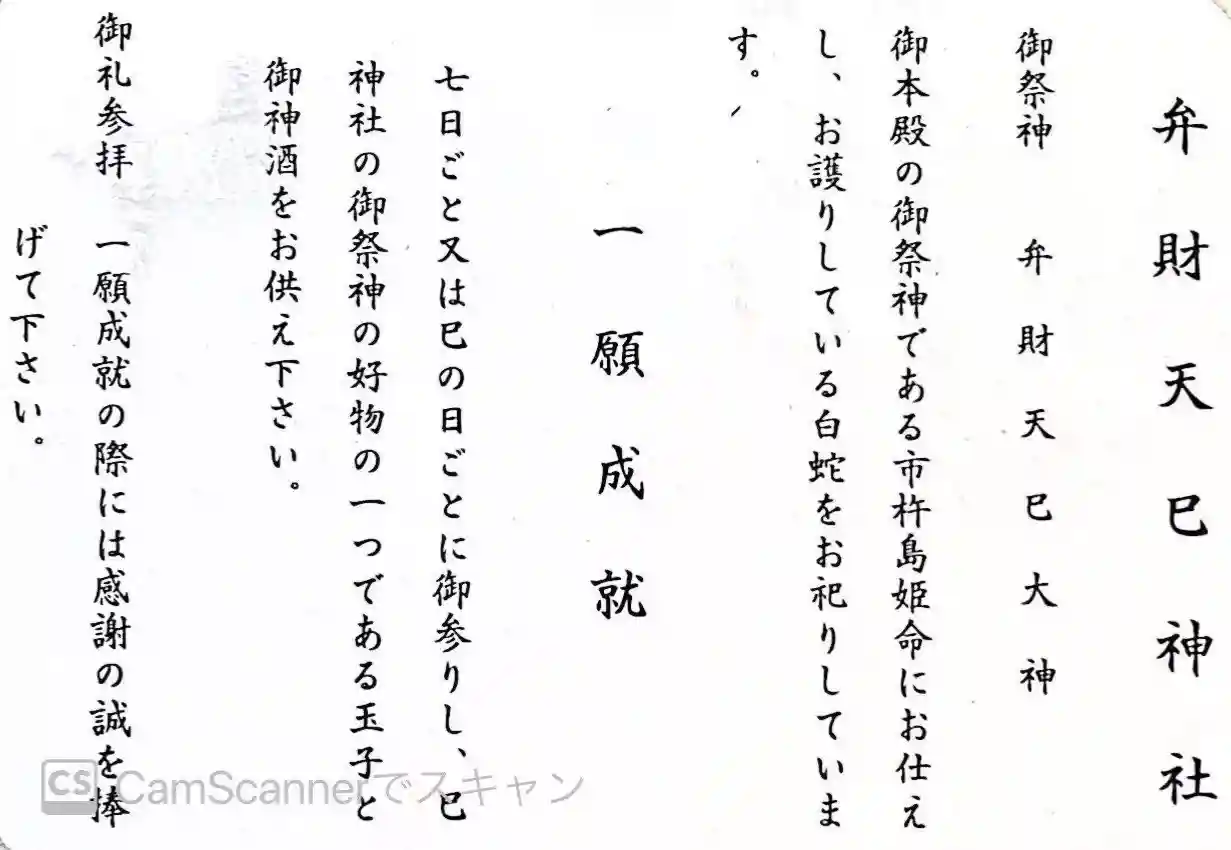 弁財天巳神社
御祭神　弁財天巳大神
御本殿の御祭神である市杵島姫命にお仕え
し、お護りしている白蛇をお祀りしていま
す。
一願成就
七日ごと又は巳の日ごとに御参りし、巳
神社の御祭神の好物の一つである玉子と
御神酒をお供え下さい。
御礼参拝　一願成就の際には感謝の誠を捧
げて下さい。
CS CamScannerでスキャン